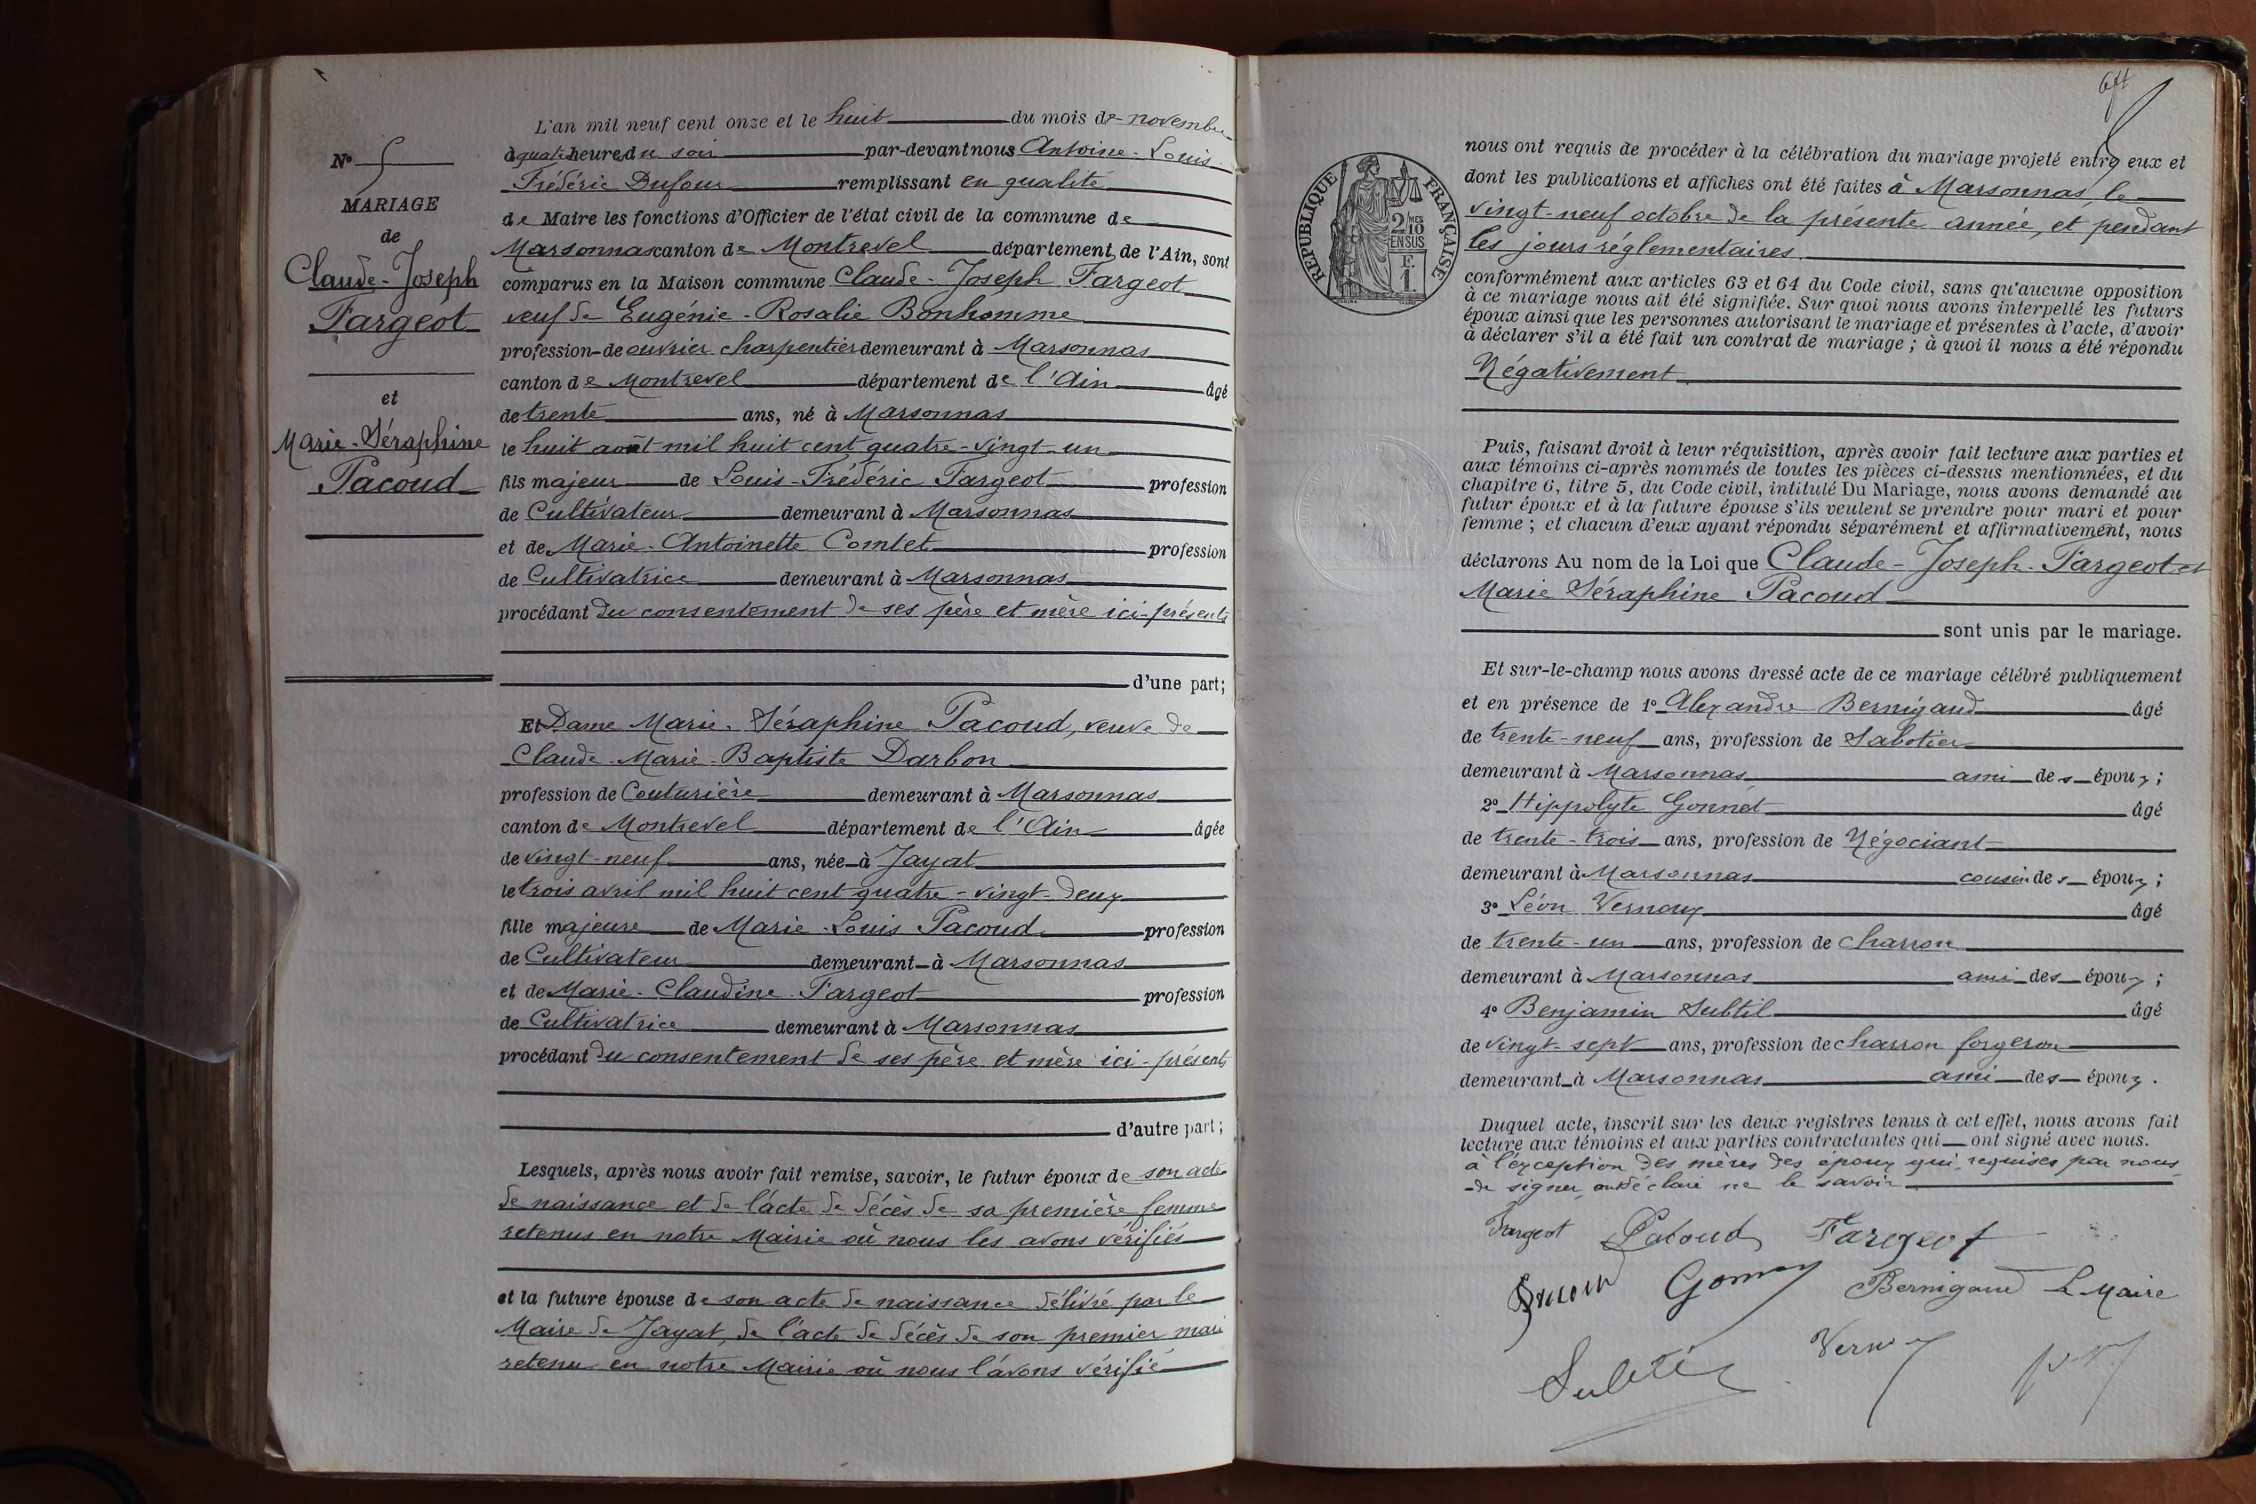 N° 5
MARIAGE
de
Claude-Joseph
Fargeot
et
Marie-Séraphine
Pacoud
L'an mil neuf cent onze et le huit du mois de novembre
à quatre heures du soir par-devant nous Antoine-Louis
Frédéric Dufour remplissant en qualité
de Maire les fonctions d'Officier de l'état civil de la commune de
Marsonnas canton de Montrevel département de l'Ain, sont
comparus en la Maison commune Claude-Joseph Fargeot
veuf de Eugénie-Rosalie Bonhomme
profession de ouvrier charpentier demeurant à Marsonnas
canton de Montrevel département de l'Ain âgé
de trente ans, né à Marsonnas
le huit août mil huit cent quatre-vingt-un
fils majeur de Louis-Frédéric Fargeot profession
de Cultivateur demeurant à Marsonnas
et de Marie-Antoinette Comtet profession
de Cultivatrice demeurant à Marsonnas
procédant du consentement de ses père et mère ici-présents
d'une part;
Et Dame Marie-Séraphine Pacoud, veuve de
Claude-Marie-Baptiste Darbon
profession de Couturière demeurant à Marsonnas
canton de Montrevel département de l'Ain âgée
de vingt-neuf ans, née à Jayat
le trois avril mil huit cent quatre-vingt-deux
fille majeure de Marie-Louis Pacoud profession
de Cultivateur demeurant à Marsonnas
et de Marie-Claudine Fargeot profession
de Cultivatrice demeurant à Marsonnas
procédant du consentement de ses père et mère ici-présents
d'autre part;
Lesquels, après nous avoir fait remise, savoir, le futur époux de son acte
de naissance et de l'acte de décès de sa première femme
retenus en notre Mairie où nous les avons vérifiés
et la future épouse de son acte de naissance délivré par le
Maire de Jayat, de l'acte de décès de son premier mari
retenu en notre Mairie où nous l'avons vérifié
64
RÉPUBLIQUE FRANÇAISE
2/10
EN SUS
F.
1.
nous ont requis de procéder à la célébration du mariage projeté entre eux et
dont les publications et affiches ont été faites à Marsonnas, le
vingt-neuf octobre de la présente année, et pendant
les jours réglementaires.
conformément aux articles 63 et 64 du Code civil, sans qu'aucune opposition
à ce mariage nous ait été signifiée. Sur quoi nous avons interpellé les futurs
époux ainsi que les personnes autorisant le mariage et présentes à l'acte, d'avoir
à déclarer s'il a été fait un contrat de mariage ; à quoi il nous a été répondu
Négativement.
Puis, faisant droit à leur réquisition, après avoir fait lecture aux parties et
aux témoins ci-après nommés de toutes les pièces ci-dessus mentionnées, et du
chapitre 6, titre 5, du Code civil, intitulé Du Mariage, nous avons demandé au
futur époux et à la future épouse s'ils veulent se prendre pour mari et pour
femme ; et chacun d'eux ayant répondu séparément et affirmativement, nous
déclarons Au nom de la Loi que Claude-Joseph-Fargeot et
Marie Séraphine Pacoud
sont unis par le mariage.
Et sur-le-champ nous avons dressé acte de ce mariage célébré publiquement
et en présence de 1° Alexandre Bernigaud âgé
de trente-neuf ans, profession de Sabotier
demeurant à Marsonnas ami des époux ;
2° Hippolyte Gonnet âgé
de trente-trois ans, profession de Négociant
demeurant à Marsonnas cousin des époux ;
3° Léon Vernoux âgé
de trente-un ans, profession de charron
demeurant à Marsonnas ami des époux ;
4° Benjamin Subtil âgé
de vingt-sept ans, profession de charron forgeron
demeurant à Marsonnas ami des époux.
Duquel acte, inscrit sur les deux registres tenus à cet effet, nous avons fait
lecture aux témoins et aux parties contractantes qui ont signé avec nous.
à l'exception des mères des époux qui, requises par nous
de signer, ont déclaré ne le savoir.
Fargeot Pacoud Fargeot
Bernigaud Le Maire
Subtil